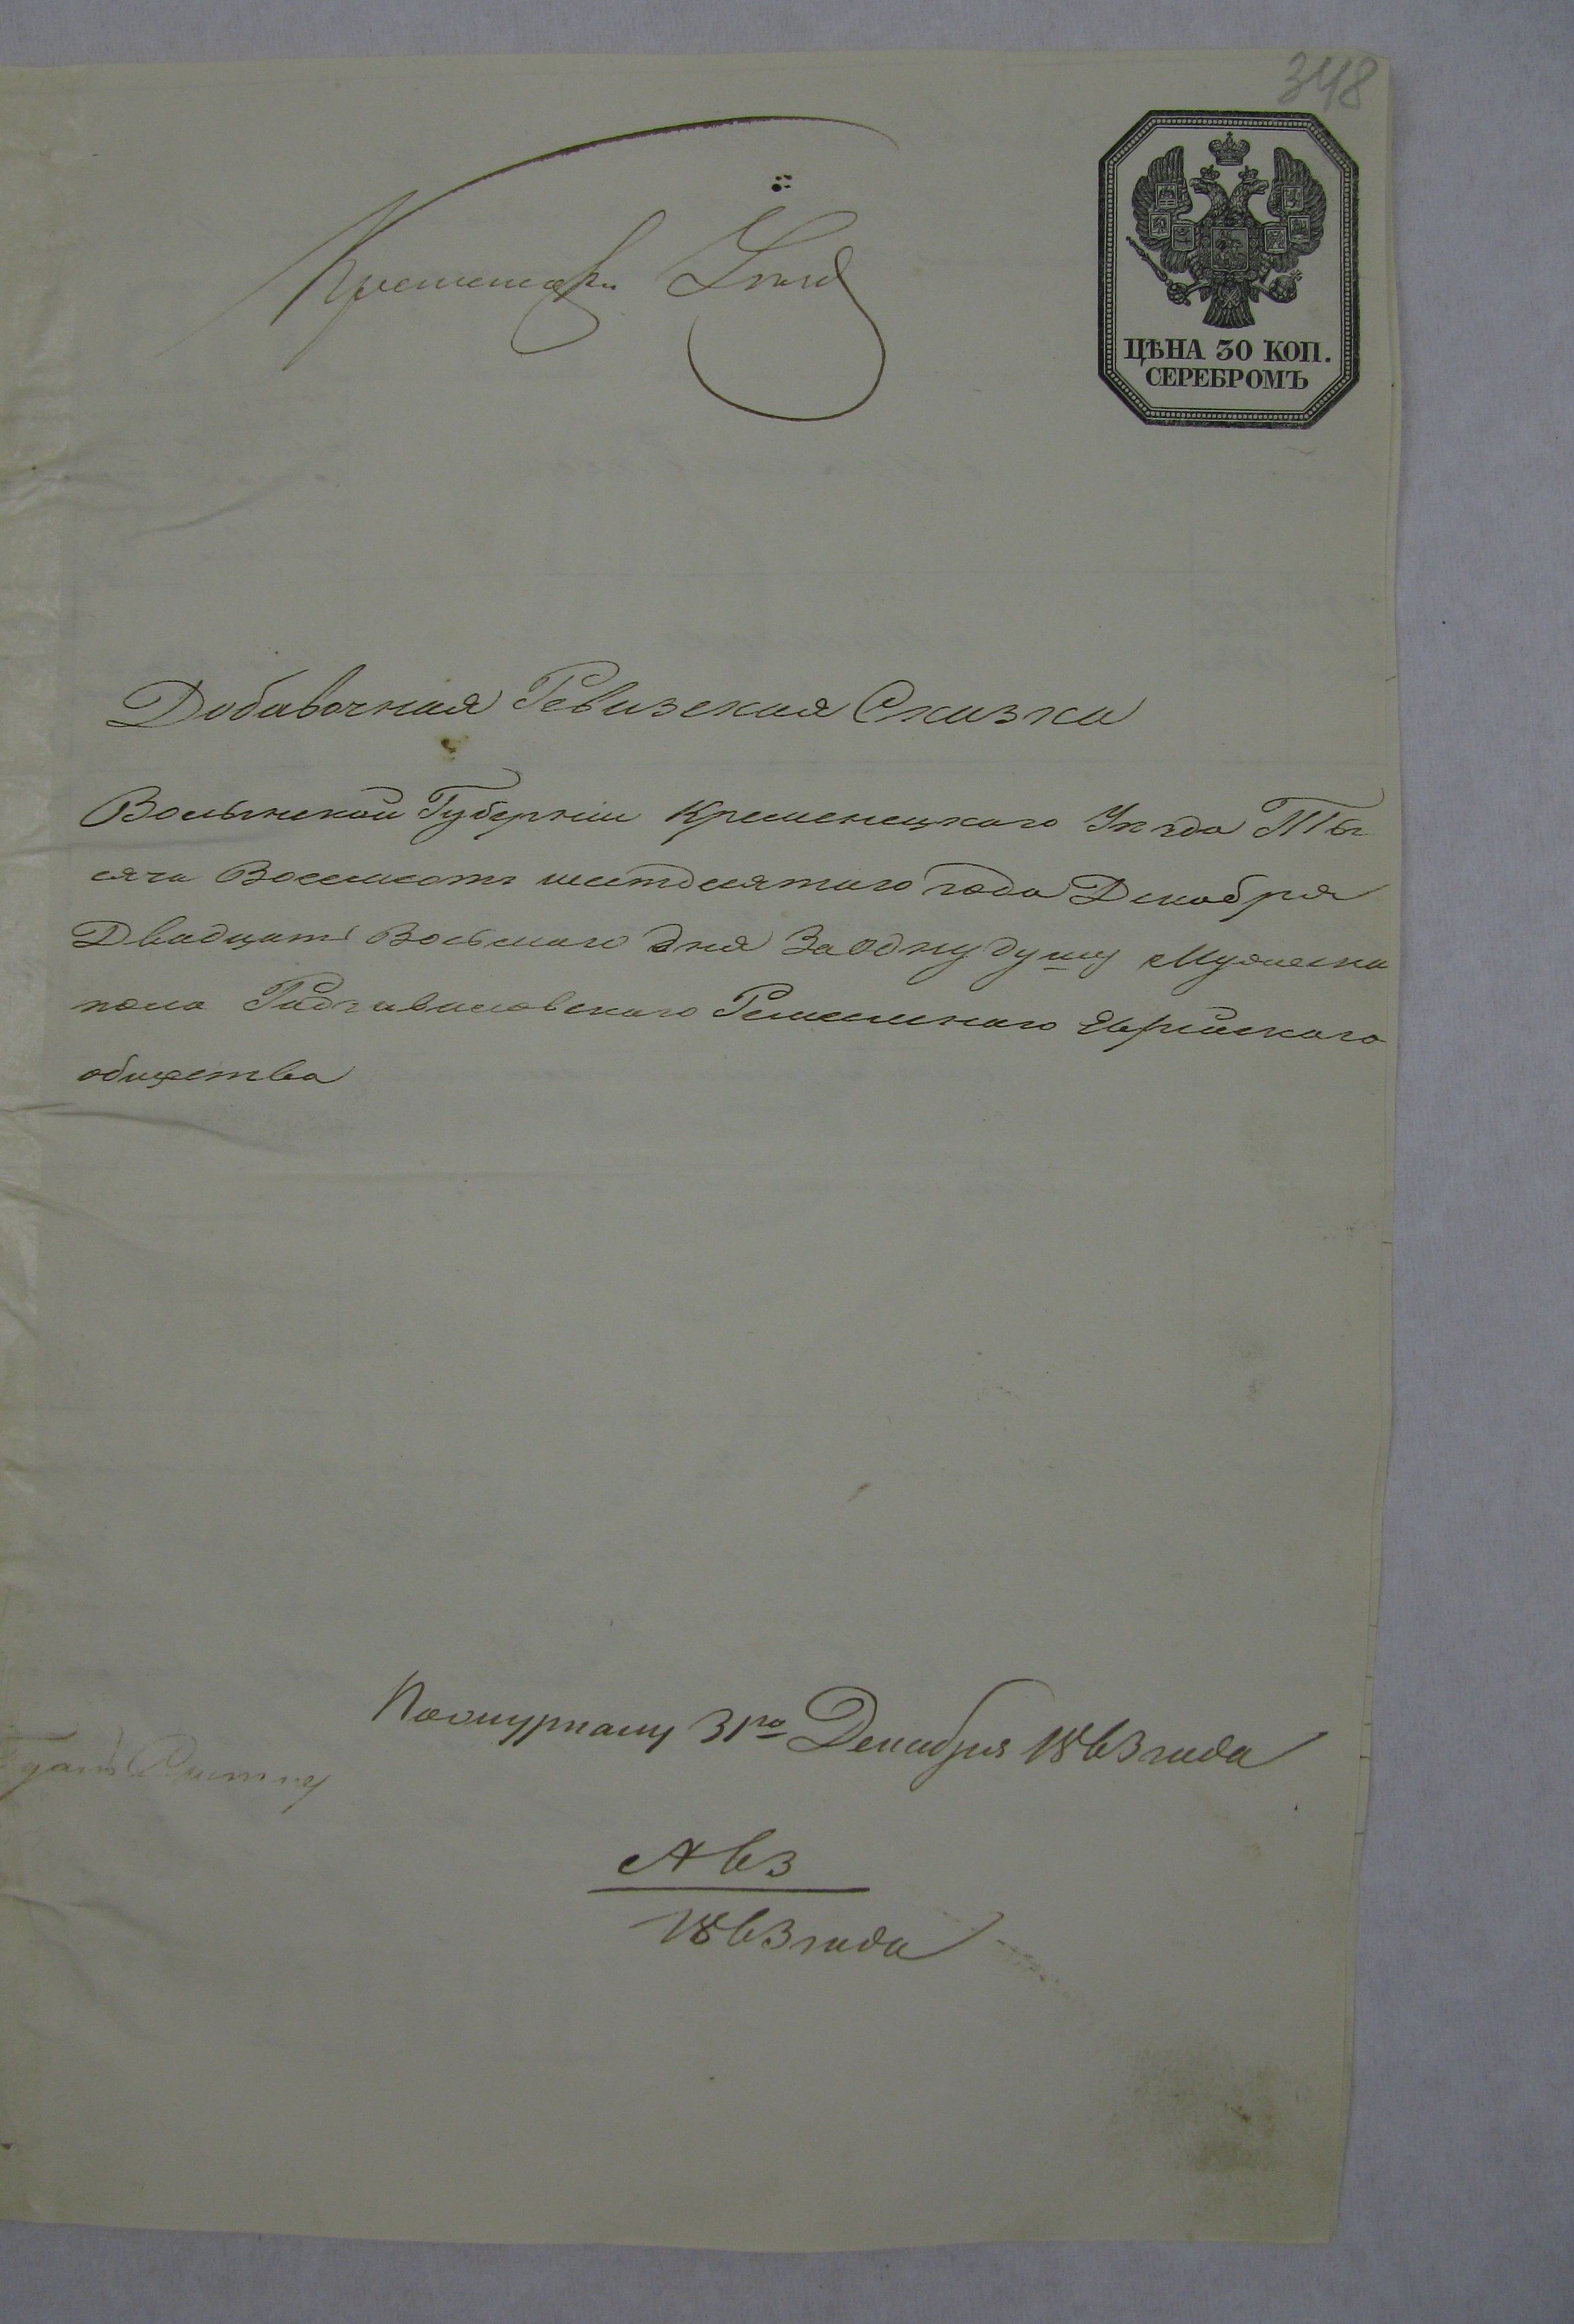 348
ЦѢНА 30 КОП.
СЕРЕБРОМЪ
Добавочная Ревизская Сказка
Волынской Губерніи Кременецкаго Уѣзда Ты
сяча Восемсотъ шестдесятаго года Декабря
Двадцать Восьмаго дня За одну душу Мужеска
пола Радзивиловскаго Ремесленаго Еврейскаго
общества
31го Декабря 1863 года
1863 года